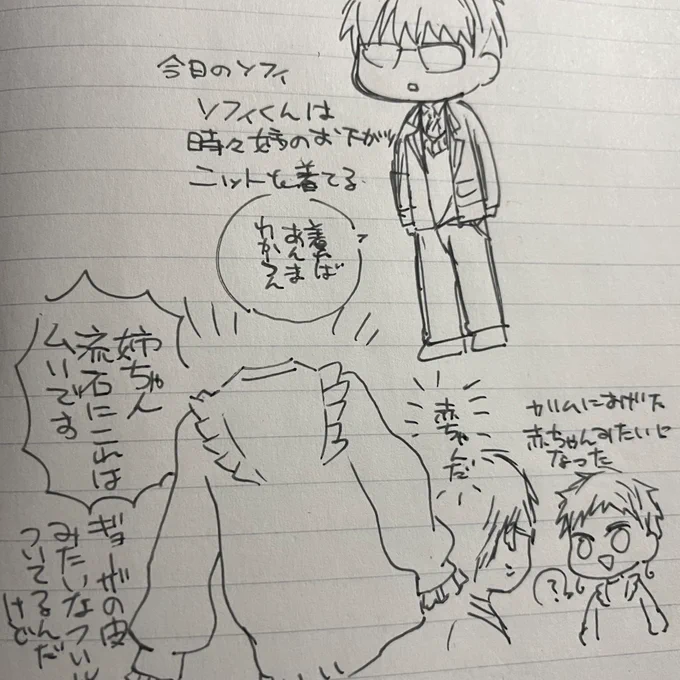 今日のソフィ
ソフィくんは
時々姉のお下がり
ニットを着てる
着れば
あんま
わかんえ
姉ちゃん
流石にこれは
ムいです
ギョーザの皮
みたいなつい
ついてるんだ
けど
赤ちゃんだ
ガムにあげた
赤ちゃんみたいに
なった